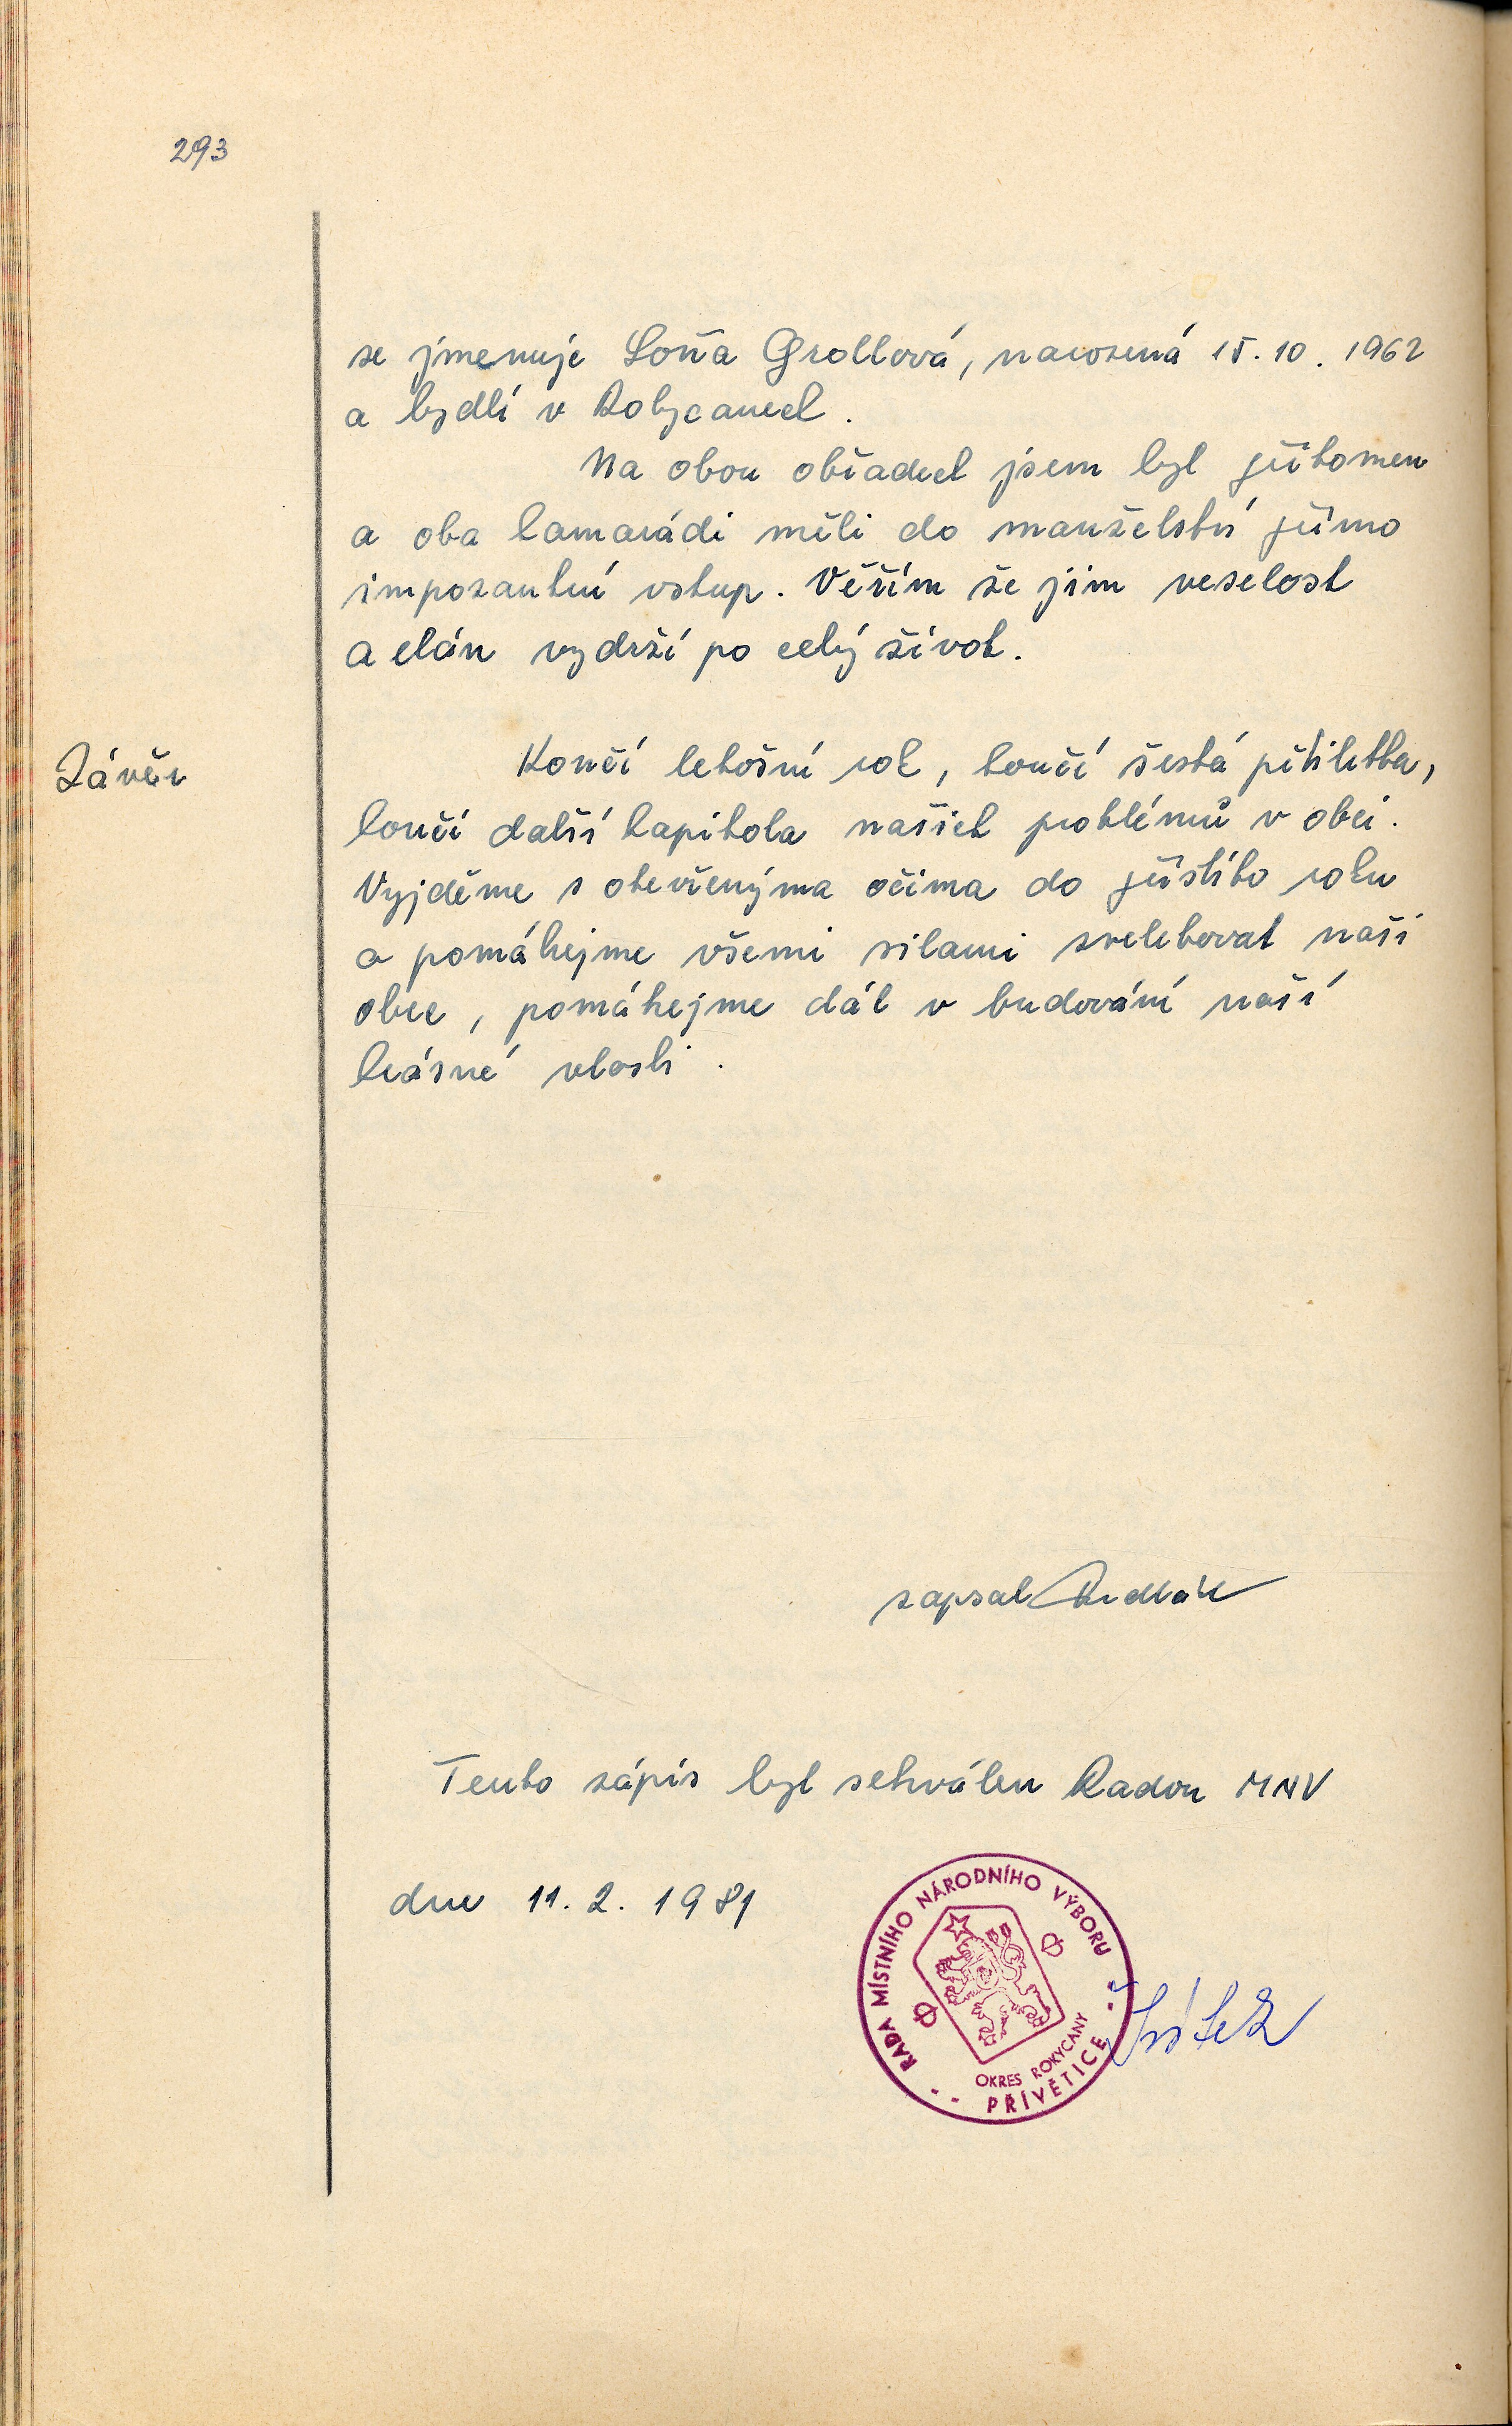 293
se jmenuje Soňa Grollová, narozená 15. 10. 1962
a bydlí v Rokycanech.
Na obou obřadech jsem byl přítomen
a oba kamarádi měli do manželství přímo
impozantní vstup. Věřím že jim veselost
a elán vydrží po celý život.
Závěr
Končí letošní rok, končí šestá pětiletka,
končí další kapitola našich problémů v obci.
Vyjděme s otevřenýma očima do příštího roku
a pomáhejme všemi silami zvelebovat naši
obec, pomáhejme dál v budování naší
krásné vlasti.
zapsal
Tento zápis byl schválen Radou MNV
dne 11. 2. 1981
RADA MÍSTNÍHO NÁRODNÍHO VÝBORU
OKRES ROKYCANY
PŘÍVĚTICE